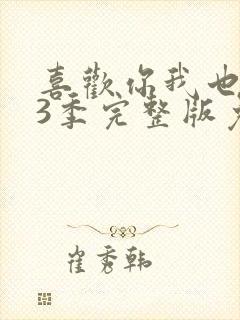 喜歡你我也
3季完整版
崔秀韩